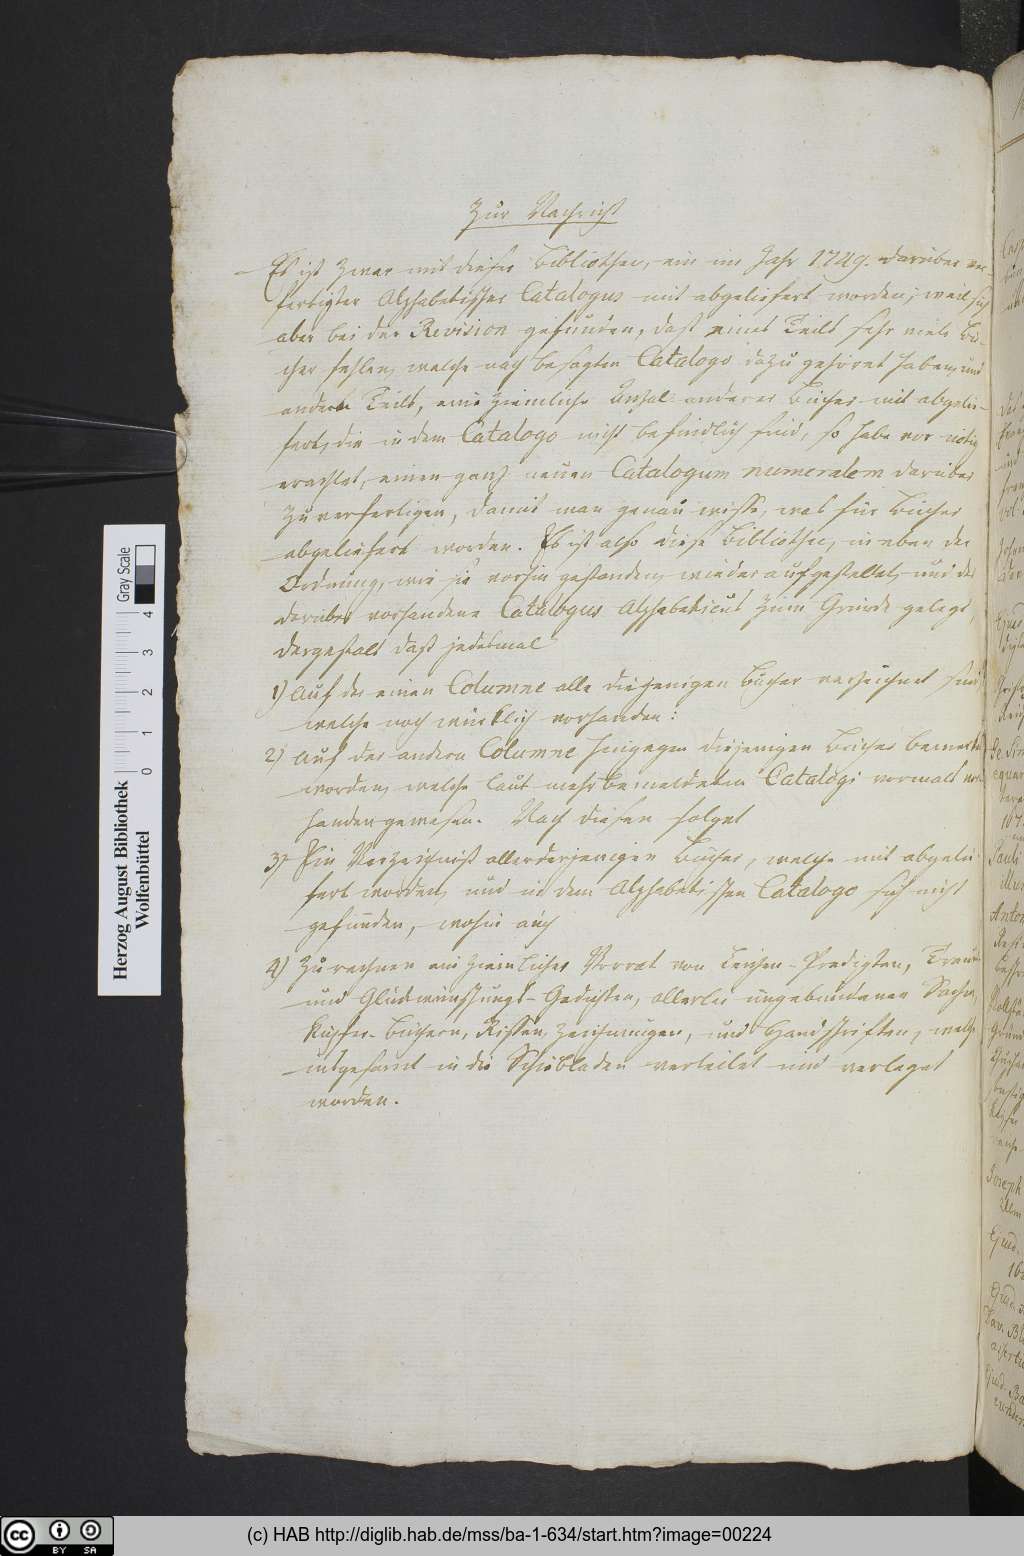 Zur Nachricht
Es ist zwar mit dieser Bibliothec, ein im Jahr 1749. darüber ver-
fertigter Alphabetischer Catalogus mit abgeliefert worden; weil sich
aber bei der Revision gefunden, daß eines Teils sehr viele Bü-
cher fehlen, welche nach besagten Catalogo dazu gehöret haben, und
andern Teils, eine ziemliche Anzal anderer Bücher mit abgelie-
fert, die in dem Catalogo nicht befindlich sind, so habe vor nötig
erachtet, einen ganz neuen Catalogum numeralem darüber
zu verfertigen, damit man genau wisse, was für Bücher
abgeliefert worden. Es ist also diese Bibliothec, in eben der
Ordnung, wie sie vorhin gestanden, wieder aufgestellet, und der
darüber vorhandene Catalogus Alphabeticus zum Grunde gelegt,
dergestalt daß jedesmal
1) Auf der einen Columne alle diejenigen Bücher verzeichnet sind
welche noch würklich vorhanden:
2) Auf der andern Columne hingegen diejenigen Bücher bemerkt
worden, welche laut mehrbemeldeten Catalogi vormals vor-
handen gewesen. Nach diesen folget
3) Ein Verzeichniß allerderjenigen Bücher, welche mit abgelie-
fert worden, und in dem Alphabetischen Catalogo sich nicht
gefunden, wohin auch
4) Zu rechnen ein ziemlicher Vorrat von Leichen-Predigten, Trauer-
und Glückwünschungs-Gedichten, allerlei ungebundenen Sachen,
Kupfer-Büchern, Rissen, Zeichnungen, und Handschriften, welche
insgesamt in die Schiebladen verteilet und verleget
worden.
Herzog August Bibliothek
Wolfenbüttel
Gray Scale
0 1 2 3 4
cc BY SA
(c) HAB http://diglib.hab.de/mss/ba-1-634/start.htm?image=00224